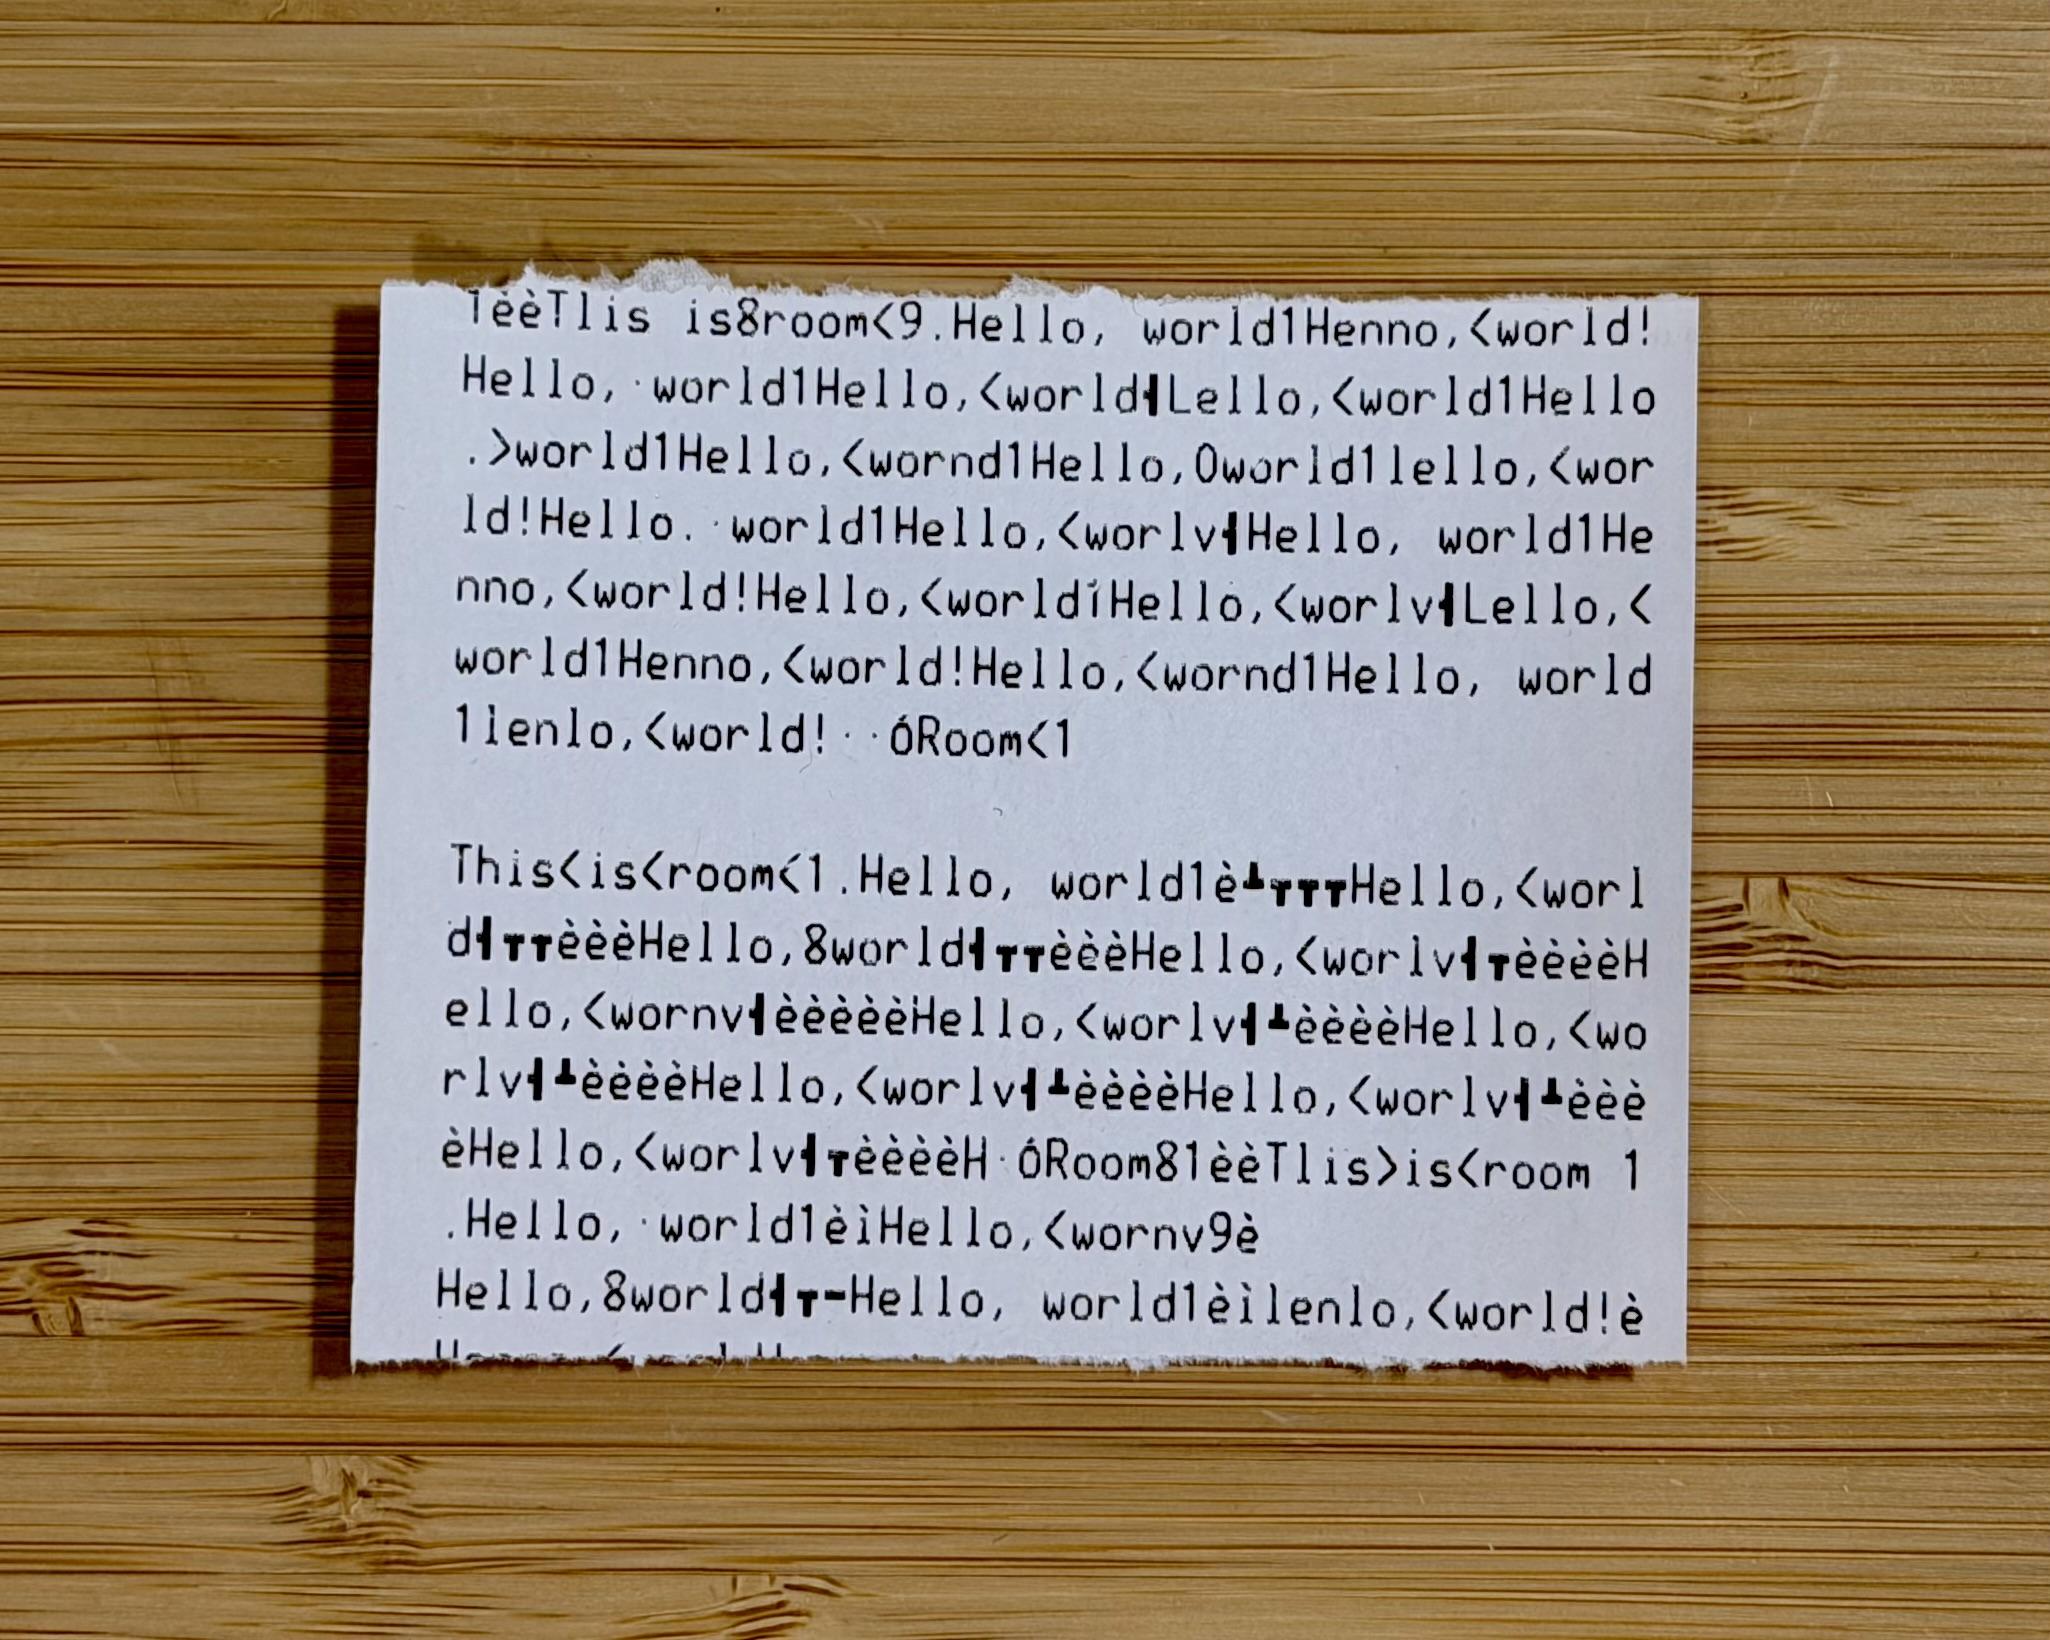 1èèTlis is8room<9.Hello, world1Henno,<world!
Hello, ·world1Hello,<world┫Lello,<world1Hello
.>world1Hello,<wornd1Hello,0world1lello,<wor
ld!Hello. ·world1Hello,<worlv┫Hello, world1He
nno,<world!Hello,<worldíHello,<worlv┫Lello,<
world1Henno,<world!Hello,<wornd1Hello, world
1ìenlo,<world!··óRoom<1
This<is<room<1.Hello, world1è┻┳┳┳Hello,<worl
d┫┳┳èèèHello,8world┫┳┳èèèHello,<worlv┫┳èèèèH
ello,<wornv┫èèèèèHello,<worlv┫┻èèèèHello,<wo
rlv┫┻èèèèHello,<worlv┫┻èèèèHello,<worlv┫┻èèè
èHello,<worlv┫┳èèèèH·óRoom81èèTlis>is<room 1
.Hello, ·world1èìHello,<wornv9è
Hello,8world┫┳━Hello, world1èìlenlo,<world!è